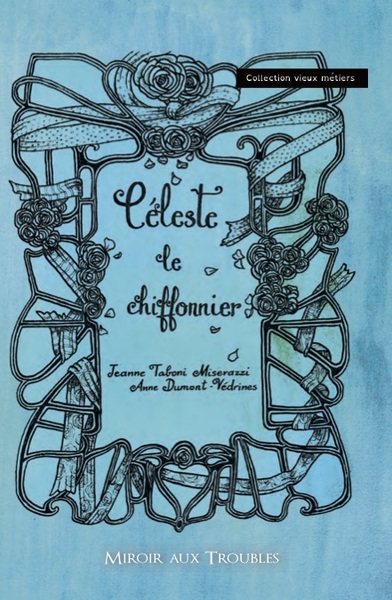 Collection vieux métiers
Céleste
le
chiffonnier
Jeanne Taboni Miserazzi
Anne Dumont-Védrines
MIROIR AUX TROUBLES